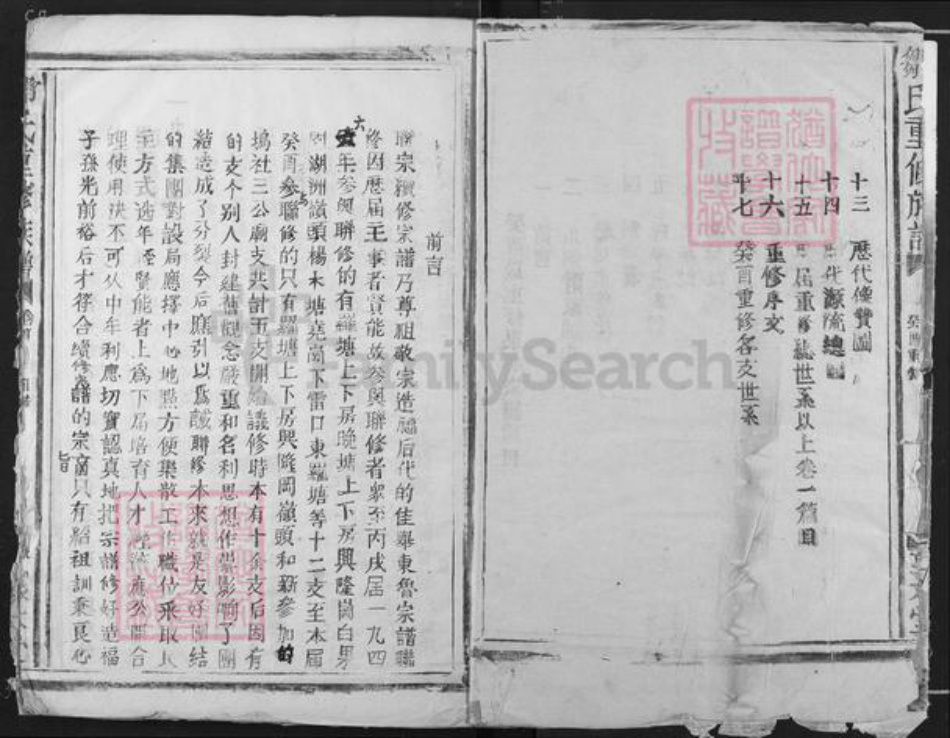 鄒氏重修族譜
十三 歷代像贊圖
十四 歷代源流總圖
十五 歷屆重修總世系以上卷一篇目
十六 重修序文
十七 癸酉重修各支世系
前言
聯宗續修宗譜乃尊祖敬宗造福后代的佳舉東魯宗譜聯
修因歷屆主事者賢能故參與聯修者眾至丙戌屆一九四
六年參與聯修的有羅塘上下房晚塘上下房興隆崗白果
湖洲嶺頭楊木塘堯崗下雷口東羅塘等十二支至本屆
癸酉參與聯修的只有羅塘上下房興隆岡嶺頭和新參加的
塢社三公廟支共計五支開始議修時本有十余支后因有
的支个別人封建舊觀念嚴重和名利思想作祟影响了團
結造成了分裂今后應引以為誡聯修本來就是友好團結
的集團對設局應擇中心地點方便集散工作職位采取民
主方式选年輕賢能者上為下屆培育人才經濟應公開合
理使用决不可从中牟利應切實認真地把宗譜修好造福
子孫光前裕后才符合續修譜的宗旨只有紹祖訓秉良心
FamilySearch